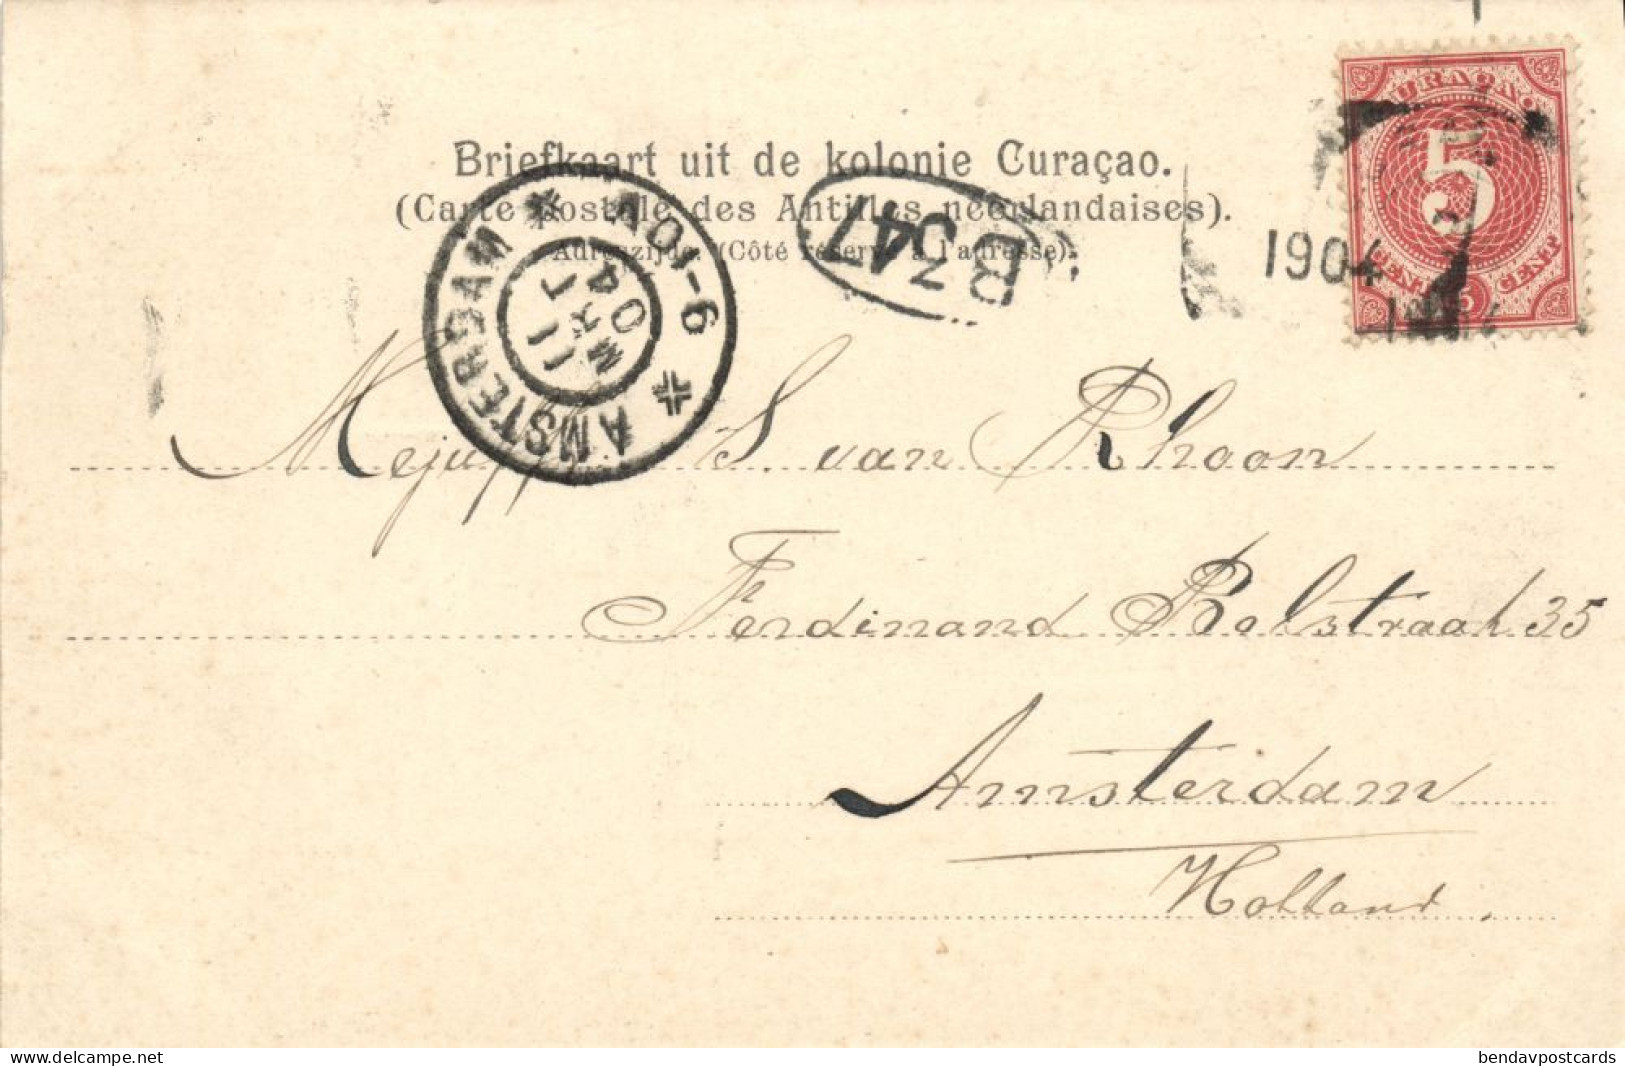 CURAÇAO
5
5 CENT
1904
Briefkaart uit de kolonie Curaçao.
(Carte postale des Antilles néerlandaises).
Adreszijde. (Côté réservé à l'adresse).
AMSTERDAM
11 MRT 04
B
347
Mejuff S. van Rhoon
Ferdinand Bolstraat 35
Amsterdam
Holland.
delcampe.net
bendavpostcards